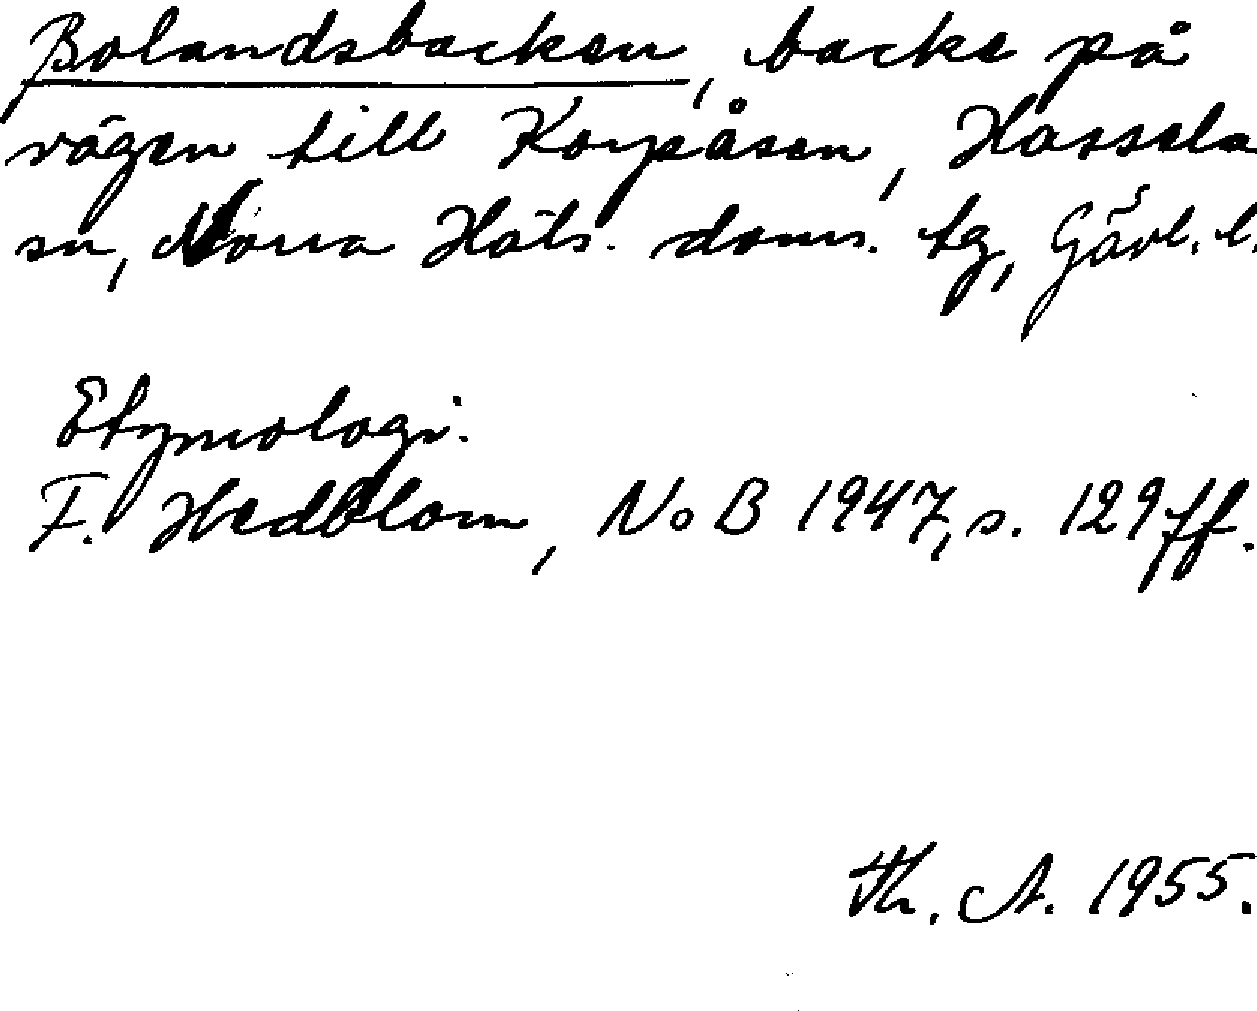 Bolandsbacken, backe på
vägen till Korpåsen, Hassela
sn, Norra Häls. doms. tg, Gävl. l.
Etymologi.
F. Hedblom, NoB 1947, s. 129 ff.
Th. A. 1955.